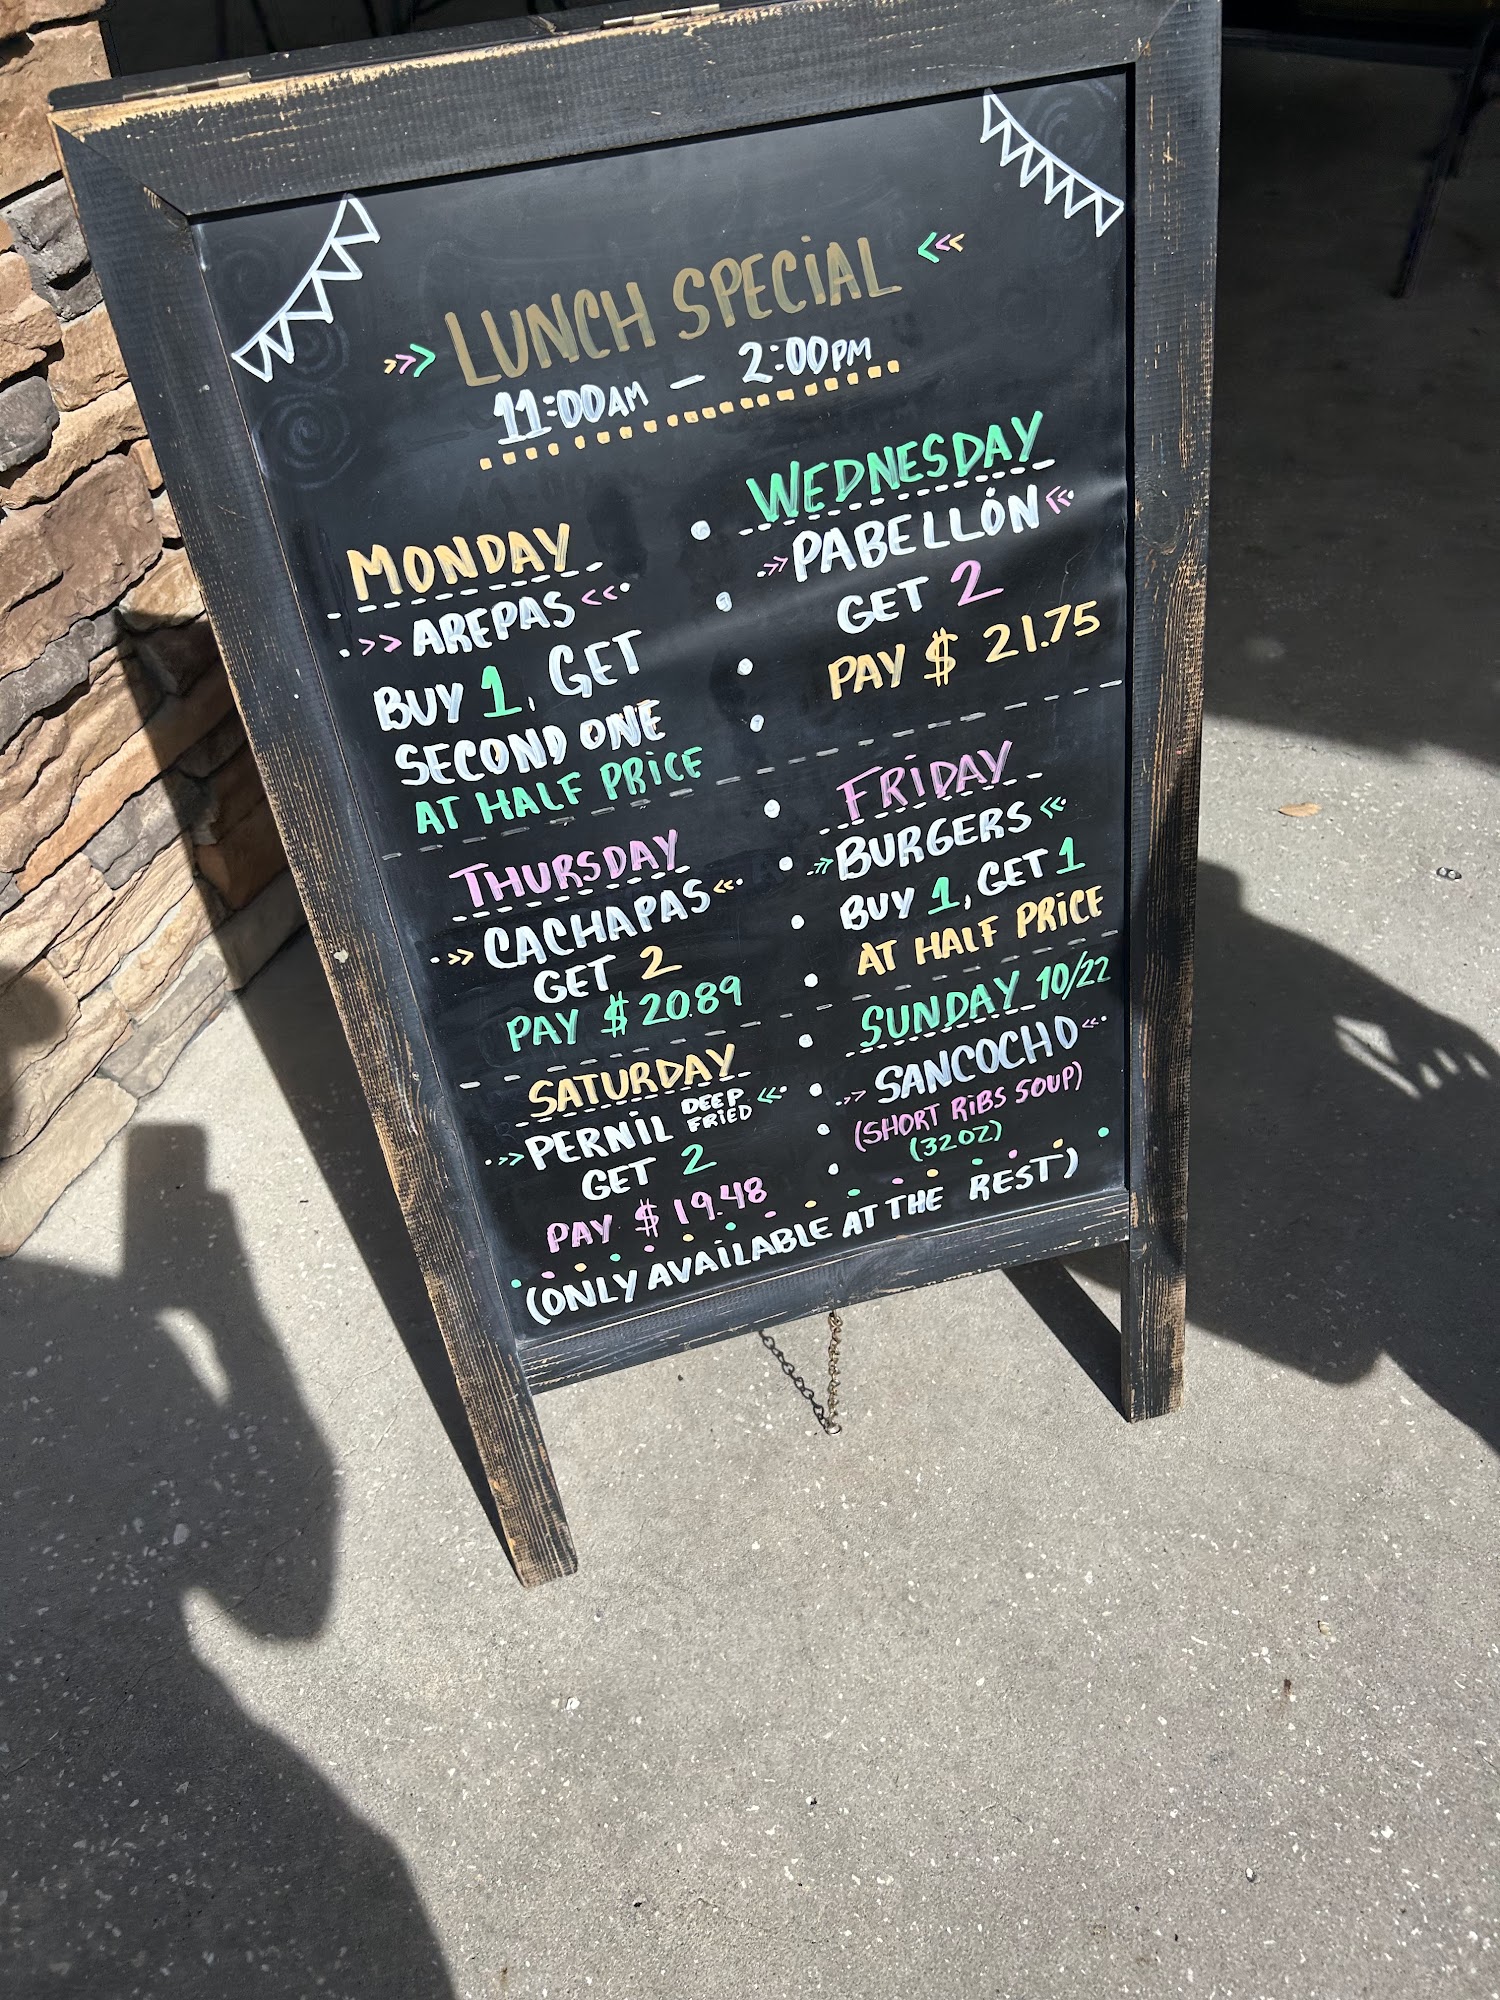 LUNCH SPECiAL
11:00AM — 2:00PM
MONDAY
AREPAS
BUY 1, GET
SECOND ONE
AT HALF PRiCE
WEDNESDAY
PABELLÓN
GET 2
PAY $ 21.75
THURSDAY
CACHAPAS
GET 2
PAY $ 20.89
FRiDAY
BURGERS
BUY 1, GET 1
AT HALF PRiCE
SATURDAY
PERNiL DEEP FRiED
GET 2
PAY $ 19.48
SUNDAY 10/22
SANCOCHO
(SHORT RiBS SOUP)
(32OZ)
(ONLY AVAiLABLE AT THE REST)